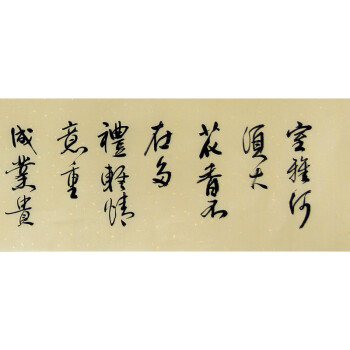 室雅何
須大
花香不
在多
禮輕情
意重
成業貴